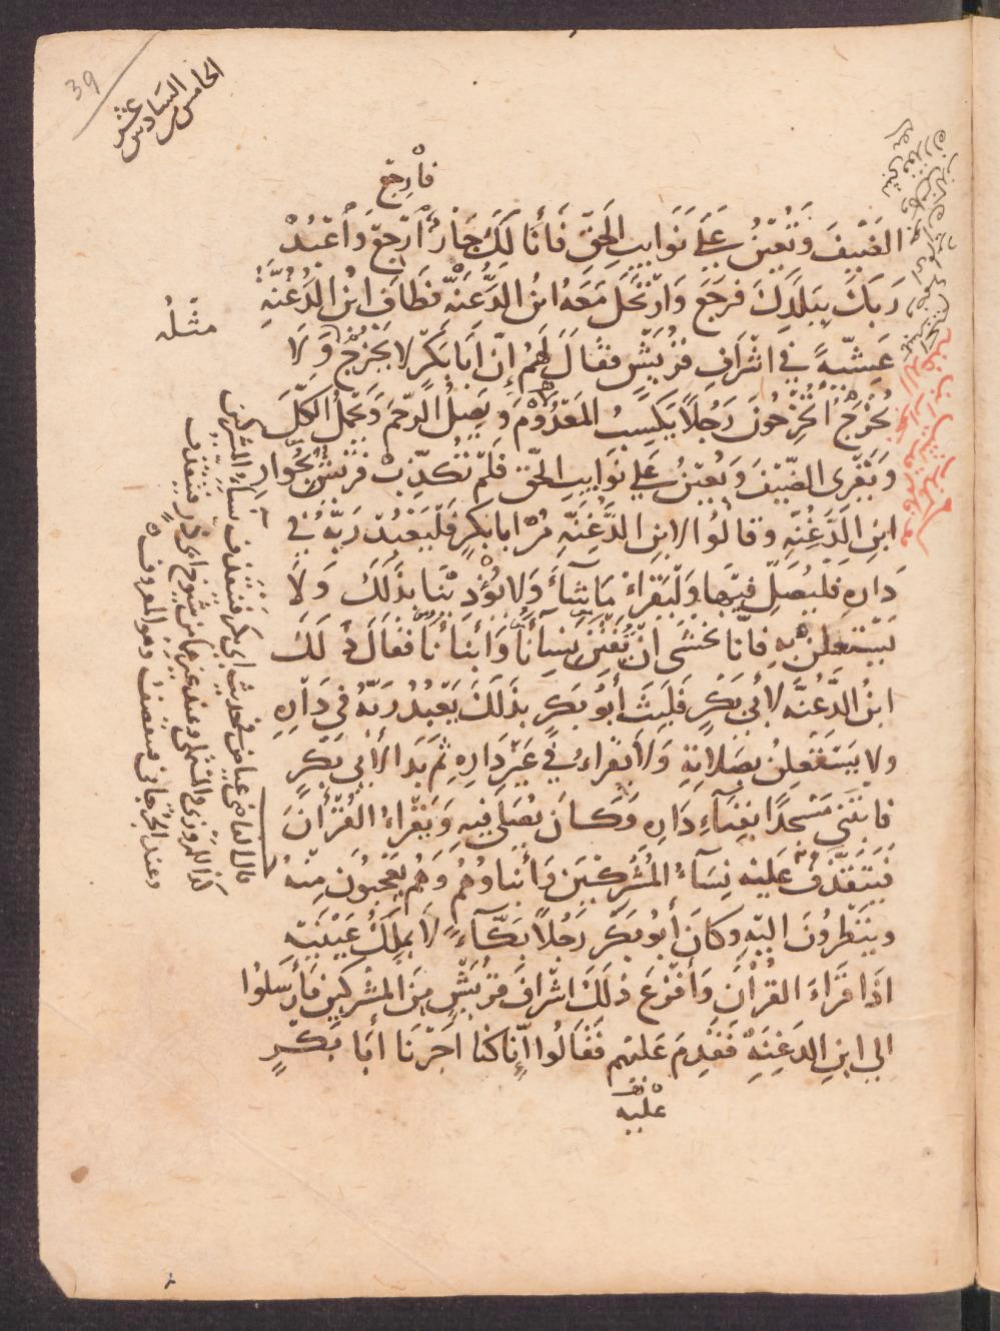 39
الخامس السادس عشر
فارجع
الضَيْفَ وَتُعِيْنُ عَلَى نَوَايبِ الحَقّ فَأَنَا لَكَ جَارٌ ارْجِعْ وَاعْبُدْ
رَبَّكَ بِبَلَدِكَ فرَجَعَ وَارْتَحَلَ مَعَهُ ابنُ الدَّغِنَّهِ فطَافَ ابنُ الدَّغِنَّةِ
عَشِيّةً في اشْرَافِ قُرَيْش فقَالَ لَهُمْ إنّ ابَا بَكْرٍ لا يَخْرُجُ وَلا
يُخْرَجُ اتُخْرِجُونَ رَجُلاً يَكسِبُ المَعْدُوْمَ وَيَصِلُ الرّحِمَ وَيَحْمِلُ الكَلَّ
وَيَقْرِى الضّيْفَ وَيُعِيْنُ عَلى نَوَايبِ الحَق فَلَمْ تُكَذِّبْ قُرَيْشٌ بِجُوَارِ
ابنِ الدَّغِنَّهِ وقالُوا لابنِ الدَّغِنَّهِ مُرْ ابا بَكرٍ فَلْيَعْبُدْ رَبَّهُ في
دَارِهِ فَليُصَلِّ فيْهَا وَلْيَقْرَاءْ مَا شَآءَ وَلا يُؤْذِيْنَا بِذَلِكَ وَلا
يَسْتَعلِنْ بِهِ فانّا نَخشَى انْ يَفْتِنَ نِسَآئنَا وَابْنَائنَا فقَالَ ذلِكَ
ابنُ الدَّغِنَّه لأبي بَكْرٍ فَلَبِثَ أَبُو بَكرٍ بذَلِكَ يَعْبُدُ رَبّهُ في دَارِهِ
ولا يَسْتَعلِنُ بصَلاتِهِ وَلا يَقرَاءُ في غَيْرِ دَارِهِ ثُمّ بَدَا لأبي بَكْرٍ
فابْتَنَى مَسْجدًا بفِنَآءِ دَارِه وَكانَ يُصَلي فيهِ وَيَقْرَاءُ القُرْأنَ
فَيَتَقَذّفُ عَليْهِ نِسَآءُ المُشْرِكيْنَ وَأَبناوهُمْ وَهُمْ يَعْجَبُونَ مِنْهُ
وينْظرُونَ اليْهِ وكَانَ أبُو بَكْرٍ رَجُلاً بَكّآءً لا يملِكُ عَيْنَيْهِ
اذَا قَرَاءَ القُرآنَ وَأَفْزَعَ ذلكَ اشْرَافَ قُرَيْشٍ مِنَ المُشْركينَ فأرْسَلُوا
الى ابنِ الدَغِنّهِ فقَدِمَ عَليْهم فَقَالُوا إنّا كنّا أجَرْنَا أبَا بَكرٍ
عليه
مثله
قال القاضي عياض في حديث ابي بكر فيتقذف نسآء المشركين
كذا للمروزي والمستملي وعند غيرهما من شيوخ ابي ذر فيتقذف
وعند الجرجاني فيتقصف وهو المعروف